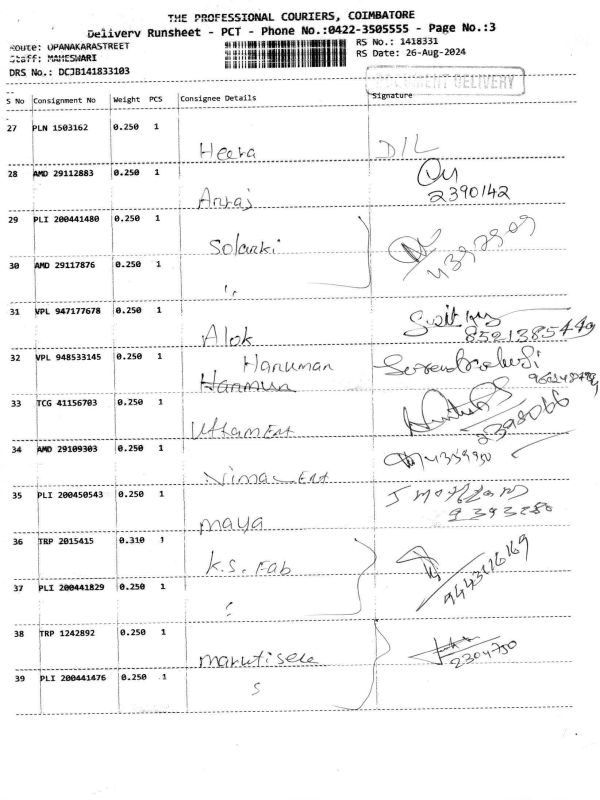 THE PROFESSIONAL COURIERS, COIMBATORE
Delivery Runsheet - PCT - Phone No.:0422-3505555 - Page No.:3
Route: OPANAKARASTREET
RS No.: 1418331
Staff: MAHESWARI
RS Date: 26-Aug-2024
DRS No.: DCJB141833103
DELIVERY
S No Consignment No Weight PCS Consignee Details Signature
27 PLN 1503162 0.250 1
Heera D/L
28 AMD 29112883 0.250 1
Anraj 2390142
29 PLI 200441480 0.250 1
Solanki
30 AMD 29117876 0.250 1
"
31 VPL 947177678 0.250 1
Alok 8521385449
32 VPL 948533145 0.250 1
Hanuman
Hanmun
33 TCG 41156703 0.250 1
Uttam Ent 2398066
34 AMD 29109303 0.250 1
Vimal Ent
35 PLI 200450543 0.250 1
maya
36 TRP 2015415 0.310 1
K.S. Fab
37 PLI 200441829 0.250 1
38 TRP 1242892 0.250 1
2304750
39 PLI 200441476 0.250 1